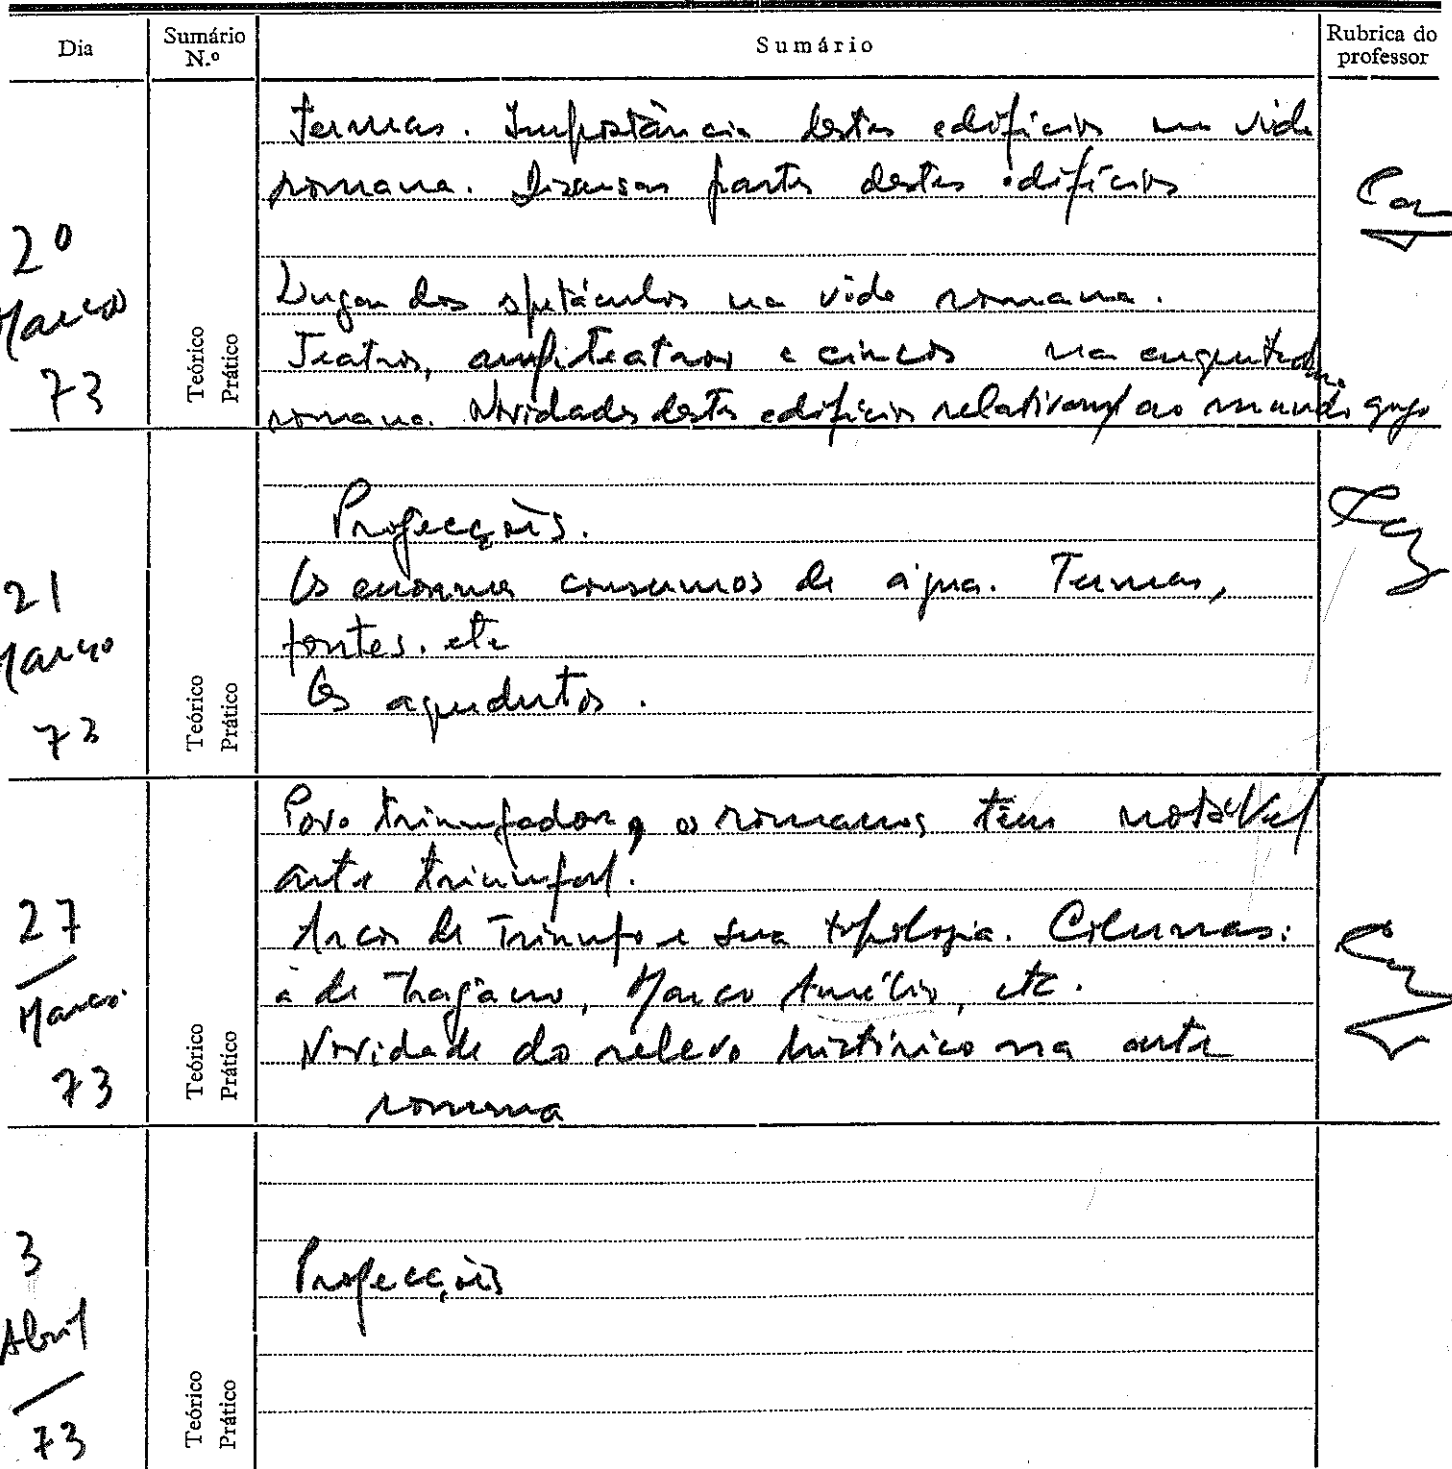 Dia
Sumário N.º
Sumário
Rubrica do professor
20 Março 73
Teórico
Prático
Termas. Importância destes edifícios na vida
romana. Diversas partes destes edifícios
Lugar dos spetáculos na vida romana.
Teatros, anfiteatros e circos na
romana. Novidades destes edifícios relativamt ao mundo grego
21 Março 73
Teórico
Prático
Projecções.
Os enormes consumos de água. Termas,
fontes. etc
Os aquedutos.
27 Março 73
Teórico
Prático
Povo triunfador, os romanos têm notável
arte triunfal.
Arcos de Triunfo e sua tipologia. Colunas:
a de Trajano, Marco Aurélio, etc.
Novidade do relevo histórico na arte
romana
3 Abril 73
Teórico
Prático
Projecções